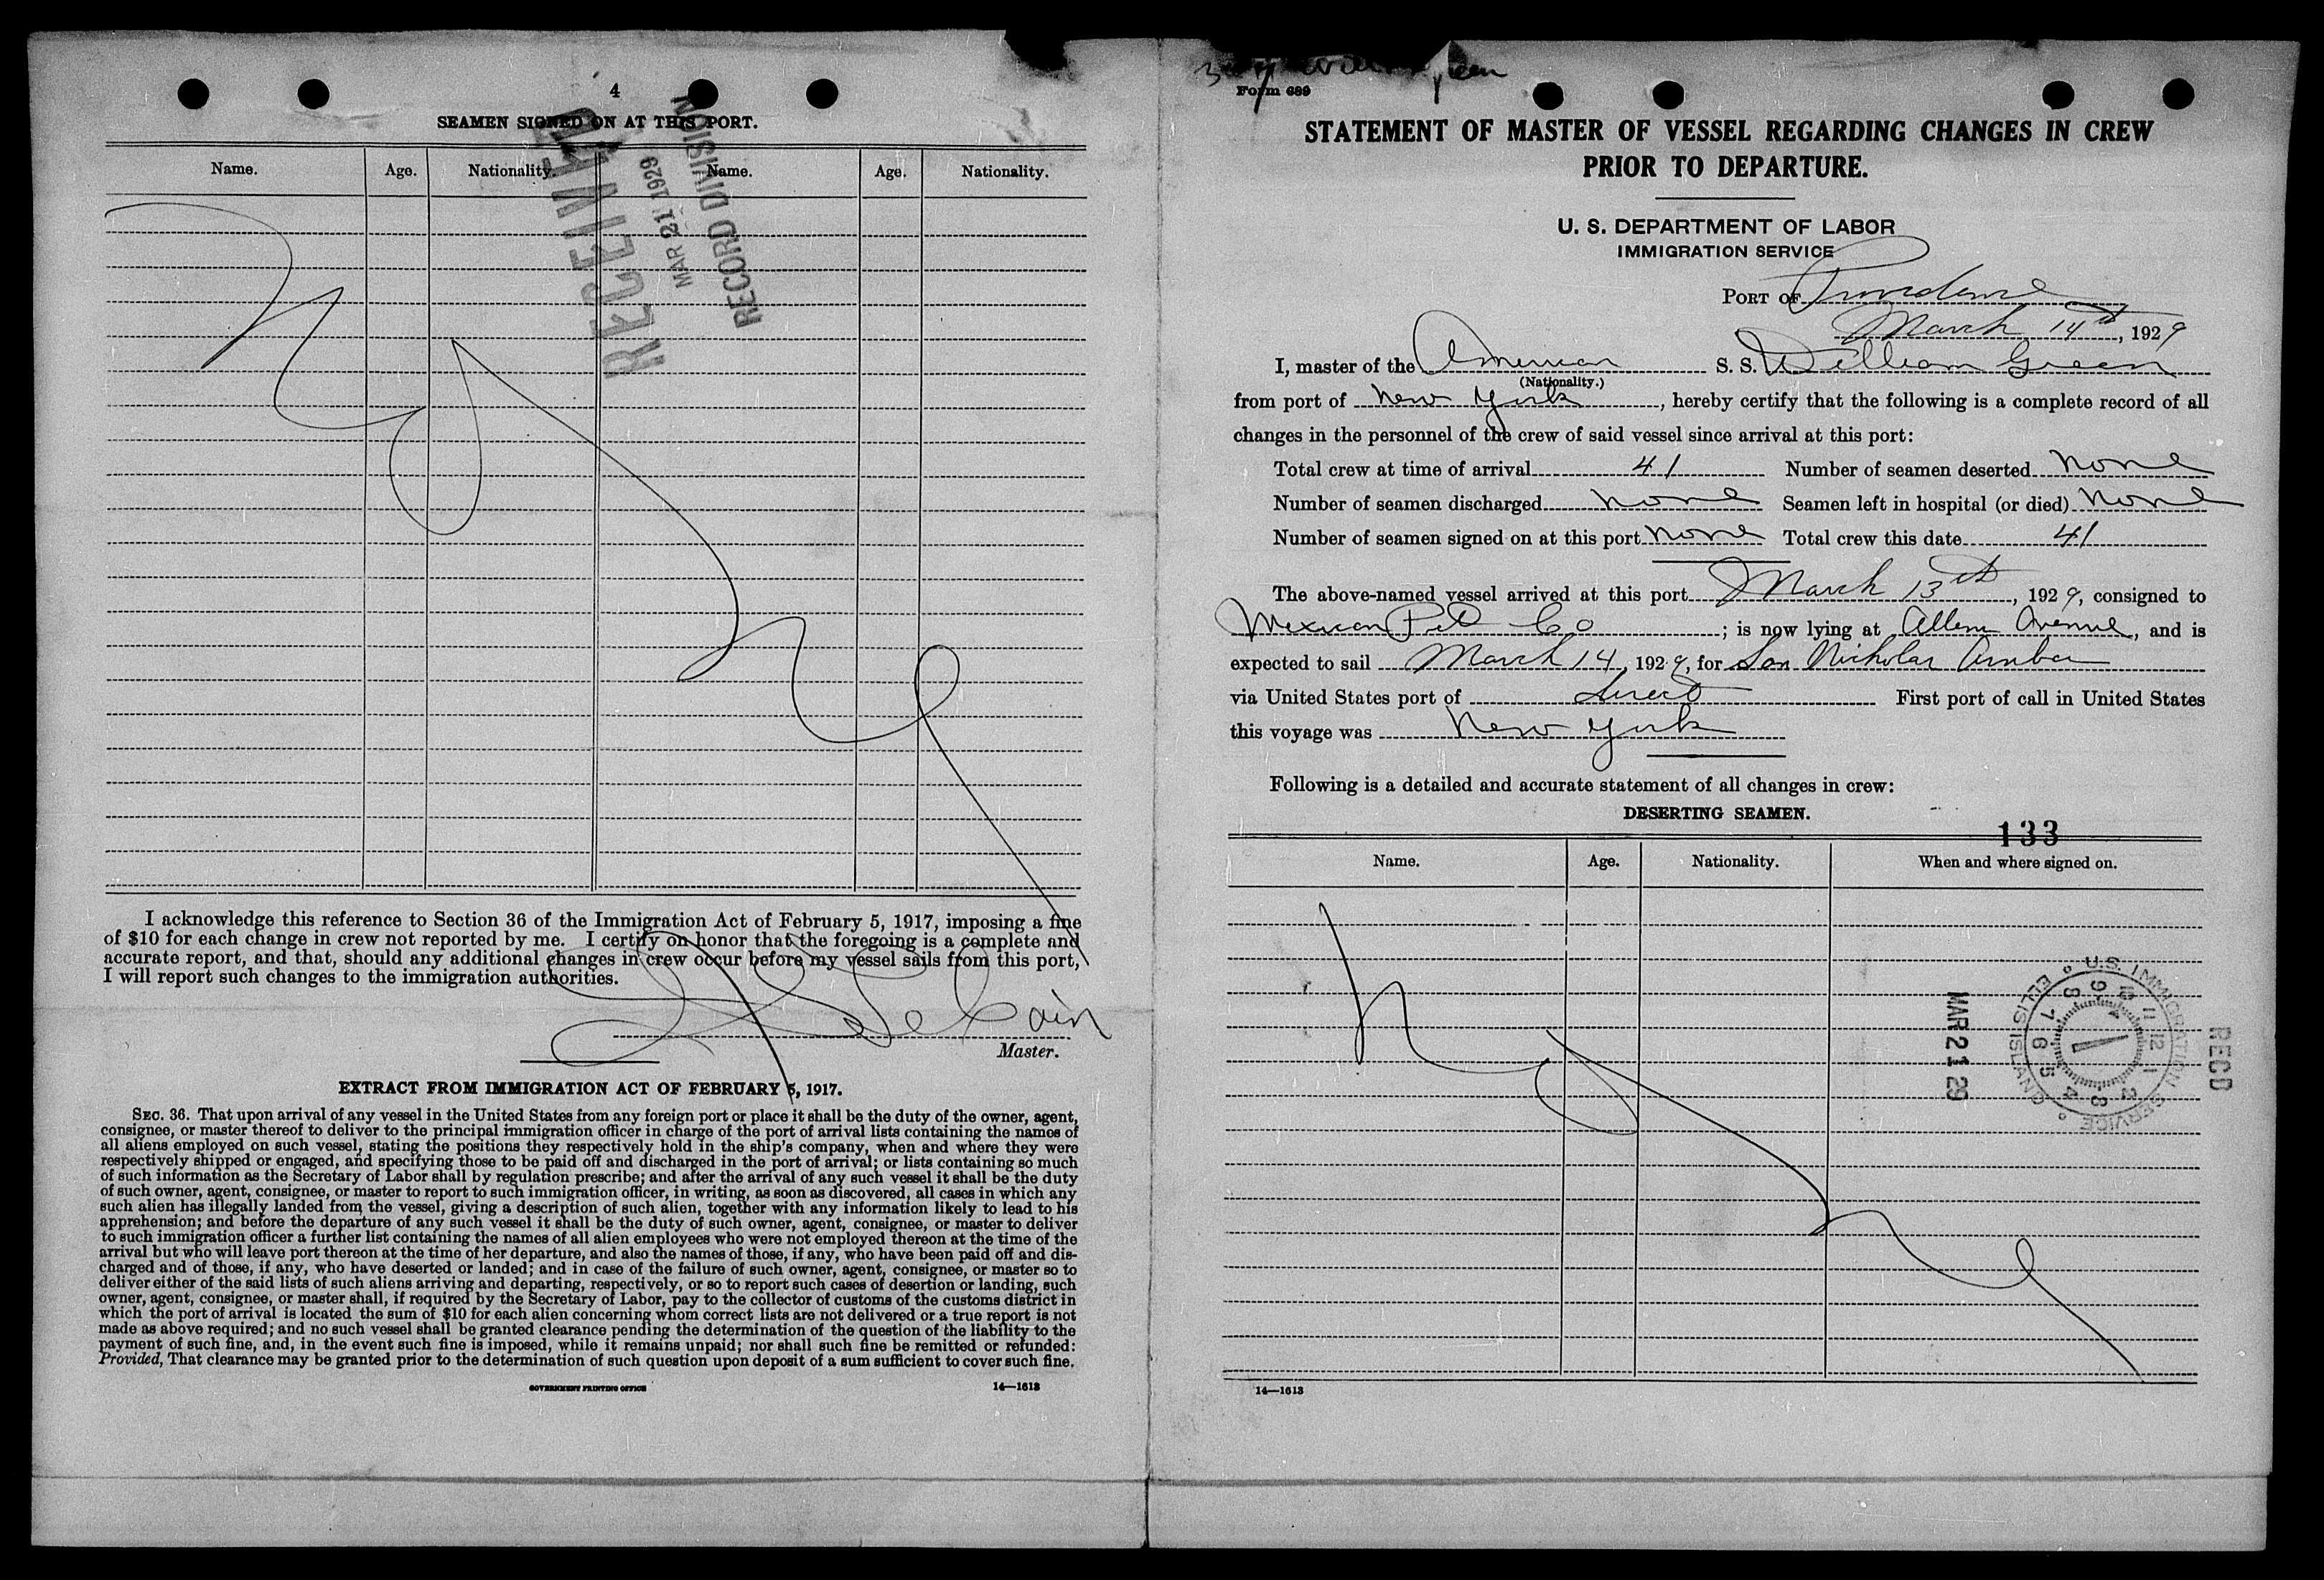 4
SEAMEN SIGNED ON AT THIS PORT.
Name. Age. Nationality. Name. Age. Nationality.
RECEIVED
MAR 21 1929
RECORD DIVISION
None
I acknowledge this reference to Section 36 of the Immigration Act of February 5, 1917, imposing a fine
of $10 for each change in crew not reported by me. I certify on honor that the foregoing is a complete and
accurate report, and that, should any additional changes in crew occur before my vessel sails from this port,
I will report such changes to the immigration authorities.
Master.
EXTRACT FROM IMMIGRATION ACT OF FEBRUARY 5, 1917.
SEC. 36. That upon arrival of any vessel in the United States from any foreign port or place it shall be the duty of the owner, agent,
consignee, or master thereof to deliver to the principal immigration officer in charge of the port of arrival lists containing the names of
all aliens employed on such vessel, stating the positions they respectively hold in the ship's company, when and where they were
respectively shipped or engaged, and specifying those to be paid off and discharged in the port of arrival; or lists containing so much
of such information as the Secretary of Labor shall by regulation prescribe; and after the arrival of any such vessel it shall be the duty
of such owner, agent, consignee, or master to report to such immigration officer, in writing, as soon as discovered, all cases in which any
such alien has illegally landed from the vessel, giving a description of such alien, together with any information likely to lead to his
apprehension; and before the departure of any such vessel it shall be the duty of such owner, agent, consignee, or master to deliver
to such immigration officer a further list containing the names of all alien employees who were not employed thereon at the time of the
arrival but who will leave port thereon at the time of her departure, and also the names of those, if any, who have been paid off and dis-
charged and of those, if any, who have deserted or landed; and in case of the failure of such owner, agent, consignee, or master so to
deliver either of the said lists of such aliens arriving and departing, respectively, or so to report such cases of desertion or landing, such
owner, agent, consignee, or master shall, if required by the Secretary of Labor, pay to the collector of customs of the customs district in
which the port of arrival is located the sum of $10 for each alien concerning whom correct lists are not delivered or a true report is not
made as above required; and no such vessel shall be granted clearance pending the determination of the question of the liability to the
payment of such fine, and, in the event such fine is imposed, while it remains unpaid; nor shall such fine be remitted or refunded:
Provided, That clearance may be granted prior to the determination of such question upon deposit of a sum sufficient to cover such fine.
GOVERNMENT PRINTING OFFICE 14—1613
Form 689
STATEMENT OF MASTER OF VESSEL REGARDING CHANGES IN CREW
PRIOR TO DEPARTURE.
U. S. DEPARTMENT OF LABOR
IMMIGRATION SERVICE
PORT OF Providence
March 14th, 1929
I, master of the American S. S. William Green
(Nationality.)
from port of New York, hereby certify that the following is a complete record of all
changes in the personnel of the crew of said vessel since arrival at this port:
Total crew at time of arrival 41 Number of seamen deserted None
Number of seamen discharged None Seamen left in hospital (or died) None
Number of seamen signed on at this port None Total crew this date 41
The above-named vessel arrived at this port March 13th, 1929, consigned to
Mexican Pet Co; is now lying at Allens Avenue, and is
expected to sail March 14, 1929, for San Nicholas Aruba
via United States port of direct First port of call in United States
this voyage was New York
Following is a detailed and accurate statement of all changes in crew:
DESERTING SEAMEN.
133
Name. Age. Nationality. When and where signed on.
None
U.S. IMMIGRATION SERVICE ELLIS ISLAND
1 2 3 4 5 6 7 8 9 10 11 12
MAR 21 29
RECD
14—1613